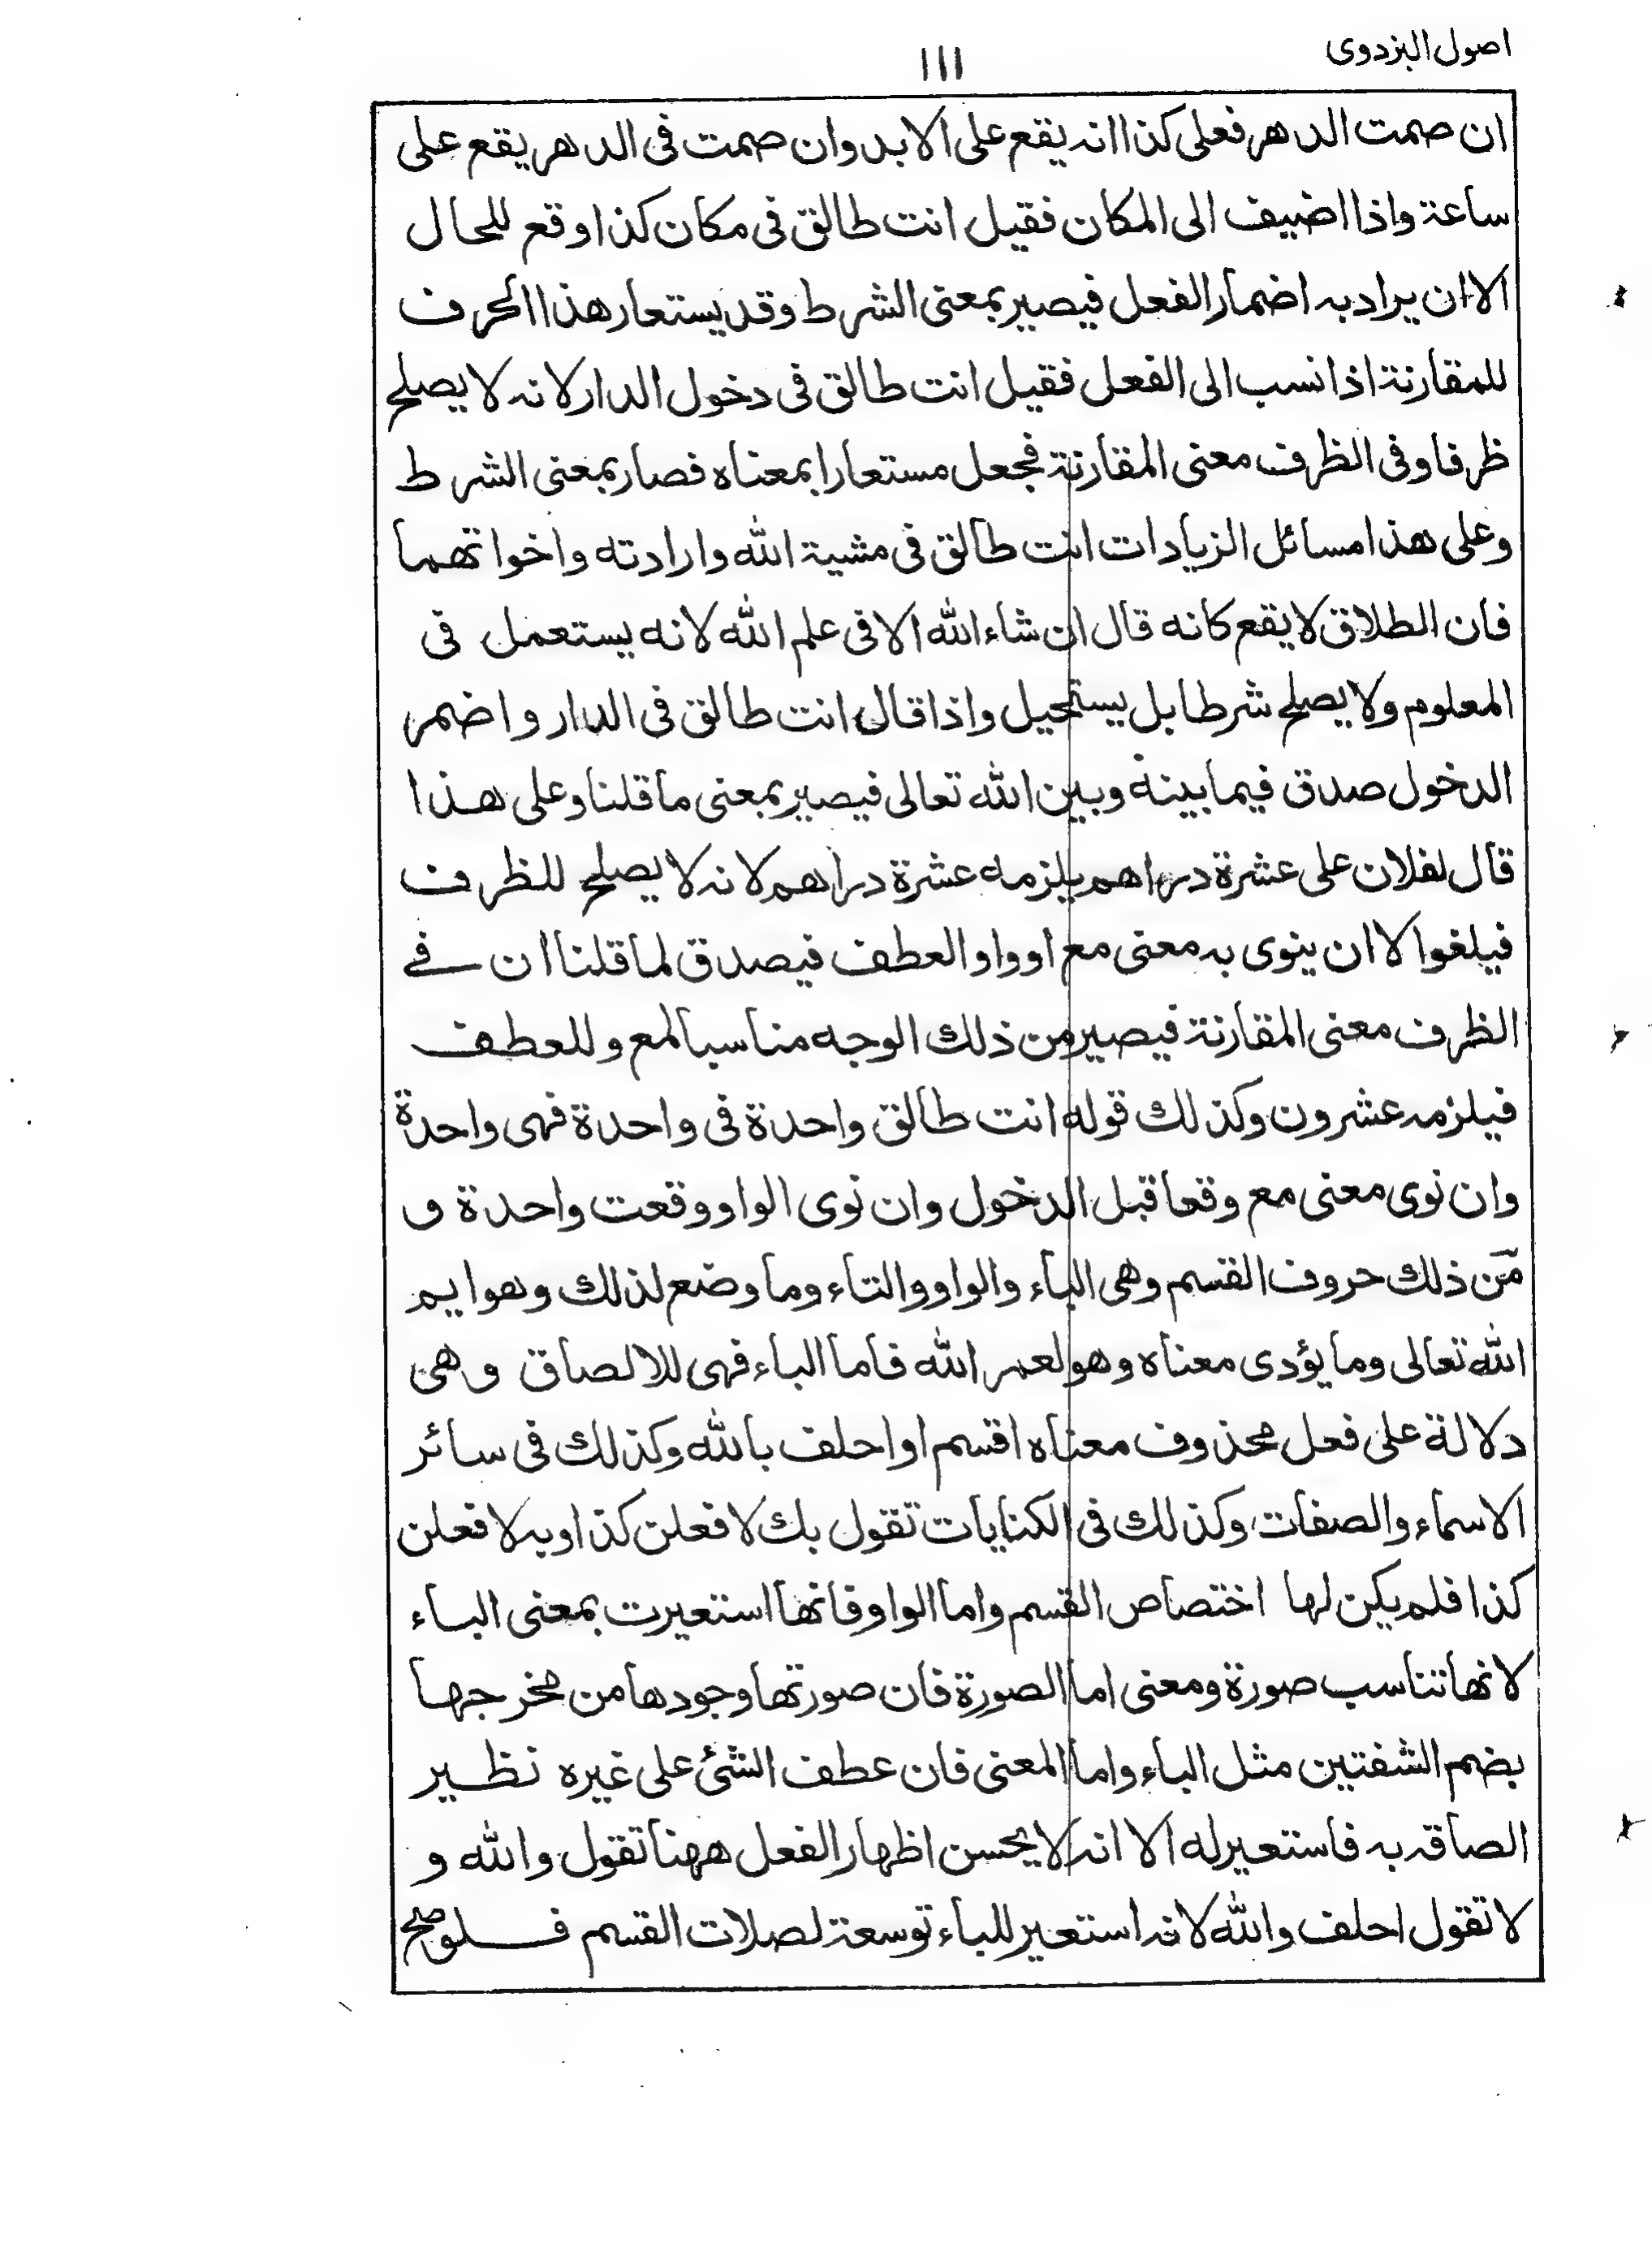 اصول البزدوى
١١١
ان صمت الدهر فعلى كذا انه يقع على الابد وان صمت فى الدهر يقع على
ساعة واذا اضيف الى المكان فقيل انت طالق فى مكان كذا وقع للحال
الا ان يراد به اضمار الفعل فيصير بمعنى الشرط وقد يستعار هذا الحرف
للمقارنة اذا نسب الى الفعل فقيل انت طالق فى دخول الدار لانه لا يصلح
ظرفا وفى الظرف معنى المقارنة فجعل مستعارا بمعناه فصار بمعنى الشرط
وعلى هذا مسائل الزيادات انت طالق فى مشية الله وارادته واخواتهما
فان الطلاق لا يقع كانه قال ان شاء الله الا فى علم الله لانه يستعمل فى
المعلوم ولا يصلح شرطا بل يستحيل واذا قال انت طالق فى الدار واضمر
الدخول صدق فيما بينه وبين الله تعالى فيصير بمعنى ما قلنا وعلى هذا
قال لفلان على عشرة دراهم يلزمه عشرة دراهم لانه لا يصلح للظرف
فيلغوا لا ان ينوى به معنى مع او واو العطف فيصدق لما قلنا ان فے
الظرف معنى المقارنة فيصير من ذلك الوجه مناسبا لمع وللعطف
فيلزمه عشرون وكذلك قوله انت طالق واحدة فى واحدة فهى واحدة
وان نوى معنى مع وقعا قبل الدخول وان نوى الواو وقعت واحدة و
من ذلك حروف القسم وهى الباء والواو والتاء وما وضع لذلك وهو ايم
الله تعالى وما يؤدى معناه وهو لعمر الله فاما الباء فهى للالصاق وهى
دلالة على فعل محذوف معناه اقسم او احلف بالله وكذلك فى سائر
الاسماء والصفات وكذلك فى الكنايات تقول بك لا فعلن كذا وبه لا فعلن
كذا فلم يكن لها اختصاص القسم واما الواو فانها استعيرت بمعنى الباء
لانها تناسب صورة ومعنى اما الصورة فان صورتها وجودها من مخرجها
بضم الشفتين مثل الباء واما المعنى فان عطف الشئ على غيره نظير
الصاقه به فاستعير له الا انه لا يحسن اظهار الفعل ههنا تقول والله و
لا تقول احلف والله لانه استعير للباء توسعة لصلات القسم فلو صلح